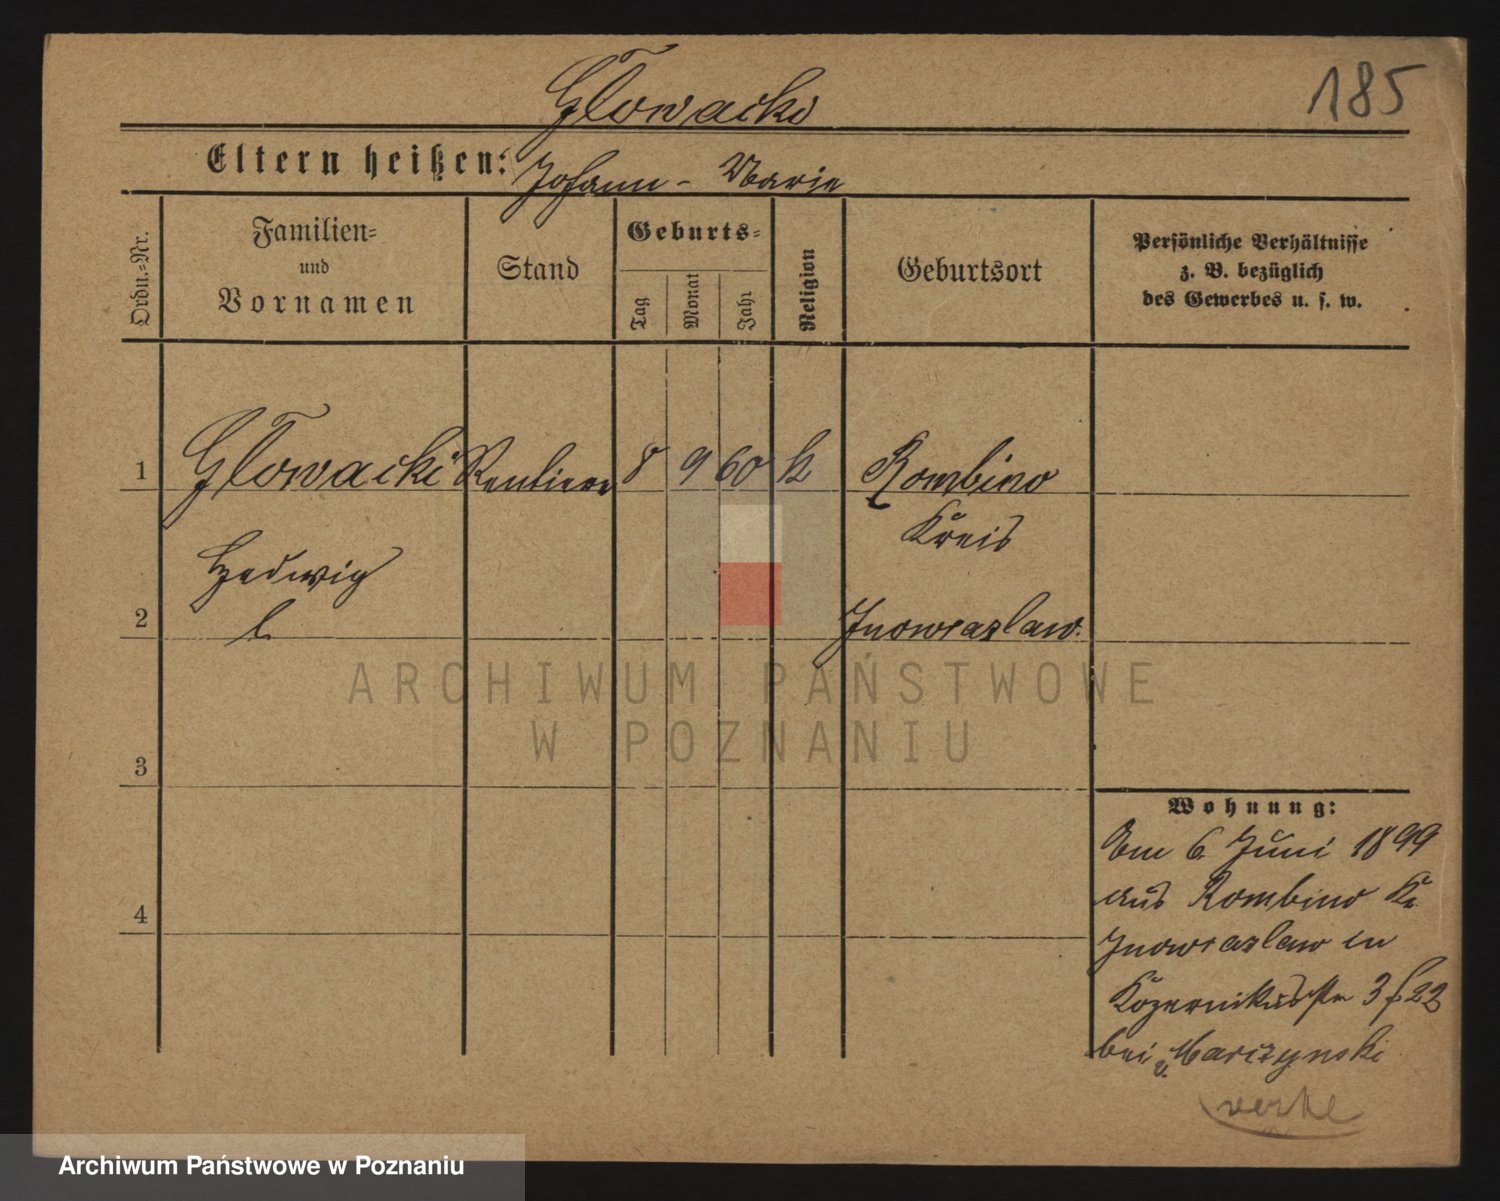 185
Głowacki
Eltern heißen: Johann - Marie
Ordn.=Nr.
Familien=
und
Vornamen
Stand
Geburts=
Tag
Monat
Jahr
Religion
Geburtsort
Persönliche Verhältnisse
z. B. bezüglich
des Gewerbes u. s. w.
1 Głowacki Rentiere 8 9 60 k Rombino
Kreis
Hedwig
2 l. Inowrazlaw.
3
4
Wohnung:
Am 6. Juni 1899
aus Rombino Kr
Inowrazlaw in
3 f 22
bei v. Marczynski
ARCHIWUM PAŃSTWOWE
W POZNANIU
Archiwum Państwowe w Poznaniu